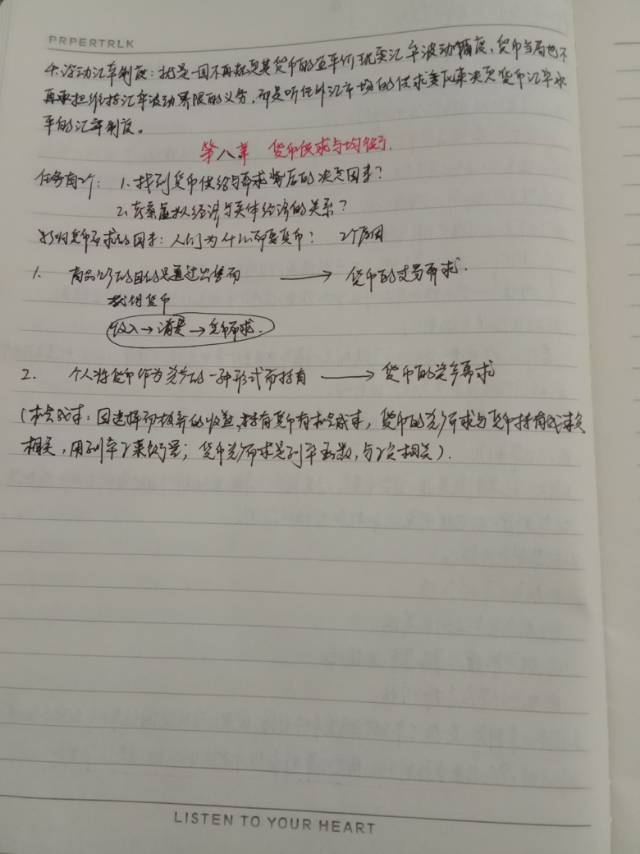 PRPERTRLK
4.浮动汇率制度:就是一国不再规定其货币的金平价及现实汇率波动幅度,货币当局也不
再承担维持汇率波动界限的义务,而是听任外汇市场的供求变化来决定货币汇率水
平的汇率制度。
第八章 货币供求与均衡
任务有2个: 1.找到货币供给与需求背后的决定因素?
2.去看虚拟经济与实体经济的关系?
影响货币需求的因素:人们为什么需要货币? 2个原因
1. 商品生产的目的是通过出售而 → 货币的交易需求.
换得货币
收入→消费→货币需求.
2. 个人将货币作为资产的一种形式而持有 → 货币的资产需求
(机会成本:因选择而放弃的收益,持有货币有机会成本,货币的资产需求与货币持有成本负
相关,用利率r来衡量;货币资产需求是利率函数,与r负相关).
LISTEN TO YOUR HEART